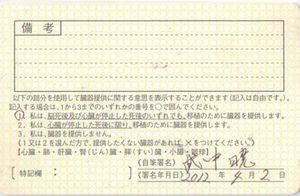 備考
以下の部分を使用して臓器提供に関する意思を表示することができます（記入は自由です）。
記入する場合は、1から3までのいずれかの番号を○で囲んでください。
1. 私は、脳死後及び心臓が停止した死後のいずれでも、移植のために臓器を提供します。
2. 私は、心臓が停止した死後に限り、移植のために臓器を提供します。
3. 私は、臓器を提供しません。
《1又は2を選んだ方で、提供したくない臓器があれば、×をつけてください。》
【心臓・肺・肝臓・腎（じん）臓・膵（すい）臓・小腸・眼球】
〔特記欄： 〕
《自筆署名》
《署名年月日》 2012年 4月 2日